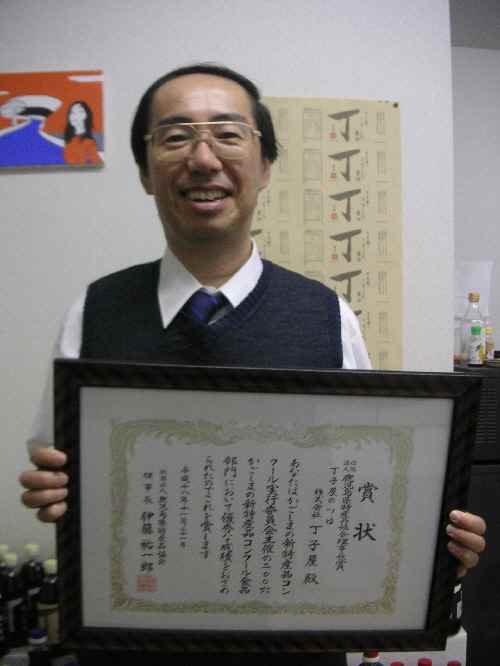 賞状
社団法人 鹿児島県特産品協会理事長賞
丁子屋のつゆ
株式会社 丁子屋 殿
あなたはかごしまの新特産品コン
クール実行委員会主催の二〇〇六
かごしまの新特産品コンクール食品
部門において優秀な成績をおさめ
られたのでこれを賞します
平成十八年十一月二十一日
社団法人 鹿児島県特産品協会
理事長 伊藤祐一郎
丁
丁
丁
丁
丁